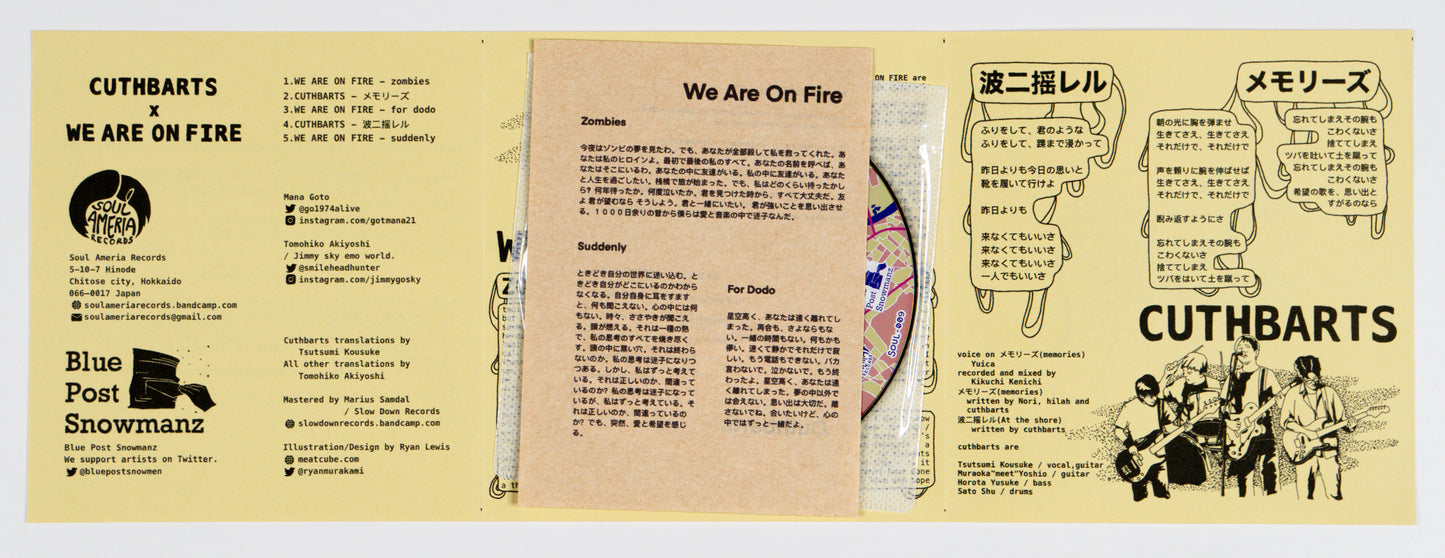 CUTHBARTS
x
WE ARE ON FIRE
1.WE ARE ON FIRE - zombies
2.CUTHBARTS - メモリーズ
3.WE ARE ON FIRE - for dodo
4.CUTHBARTS - 波二揺レル
5.WE ARE ON FIRE - suddenly
SOUL
AMERIA
RECORDS
Soul Ameria Records
5-10-7 Hinode
Chitose city, Hokkaido
066-0017 Japan
soulameriarecords.bandcamp.com
soulameriarecords@gmail.com
Blue
Post
Snowmanz
Blue Post Snowmanz
We support artists on Twitter.
@bluepostsnowmen
Mana Goto
@go1974alive
instagram.com/gotmana21
Tomohiko Akiyoshi
/ Jimmy sky emo world.
@smileheadhunter
instagram.com/jimmygosky
Cuthbarts translations by
Tsutsumi Kousuke
All other translations by
Tomohiko Akiyoshi
Mastered by Marius Samdal
/ Slow Down Records
slowdownrecords.bandcamp.com
Illustration/Design by Ryan Lewis
meatcube.com
@ryanmurakami
We Are On Fire
Zombies
今夜はゾンビの夢を見たわ。でも、あなたが全部殺して私を救ってくれた。あ
なたは私のヒロインよ。最初で最後の私のすべて。あなたの名前を呼べば、あ
なたはそこにいるわ。あなたの中に友達がいる。私の中に友達がいる。あなた
と人生を過ごしたい。桟橋で旅が始まった。でも、私はどのくらい待ったかし
ら? 何年待ったか。何度泣いたか。君を見つけた時から、すべて大丈夫だ。友
よ 君が望むなら そうしよう。君と一緒にいたい。 君が強いことを思い出させ
る。１０００日余りの昔から僕らは愛と音楽の中で迷子なんだ。
Suddenly
ときどき自分の世界に迷い込む。と
きどき自分がどこにいるのかわから
なくなる。自分自身に耳をすます
と、何も聞こえない。心の中には何
もない。時々、ささやきが聞こえ
る。頭が燃える。それは一種の熱
で、私の思考のすべてを焼き尽く
す。頭の中に黒い穴。それは終わら
ないのか。私の思考は迷子になりつ
つある。しかし、私はずっと考えて
いる。それは正しいのか、間違って
いるのか? 私の思考は迷子になって
いるが、私はずっと考えている。そ
れは正しいのか、間違っているの
か? でも、突然、愛と希望を感じ
る。
For Dodo
星空高く、あなたは遠く離れてし
まった。再会も、さよならもな
い。一緒の時間もない。何もかも
儚い。遅くて静かでそれだけで寂
しい。もう電話もできない。バカ
言わないで。泣かないで。もう終
わったよ。星空高く、あなたは遠
く離れてしまった。夢の中以外で
は会えない。思い出は大切だ。離
さないでね。会いたいけど、心の
中ではずっと一緒だよ。
ON FIRE are
Post
Snowmanz
SOUL-009
波二揺レル
ふりをして、君のような
ふりをして、踝まで浸かって
昨日よりも今日の思いと
靴を履いて行けよ
昨日よりも
来なくてもいいさ
来なくてもいいさ
来なくてもいいさ
一人でもいいさ
メモリーズ
朝の光に腕を弾ませ
生きてさえ、生きてさえ
それだけで、それだけで
声を頼りに腕を伸ばせば
生きてさえ、生きてさえ
それだけで、それだけで
睨み返すようにさ
忘れてしまえその腕も
こわくないさ
捨ててしまえ
ツバをはいて土を蹴って
忘れてしまえその腕も
こわくないさ
捨ててしまえ
ツバを吐いて土を蹴って
忘れてしまえその腕も
こわくないさ
希望の歌を、思い出と
すがるのなら
CUTHBARTS
voice on メモリーズ(memories)
Yuica
recorded and mixed by
Kikuchi Kenichi
メモリーズ(memories)
written by Nori, hilah and
cuthbarts
波二揺レル(At the shore)
written by cuthbarts
cuthbarts are
Tsutsumi Kousuke / vocal,guitar
Muraoka"meet"Yoshio / guitar
Horota Yusuke / bass
Sato Shu / drums